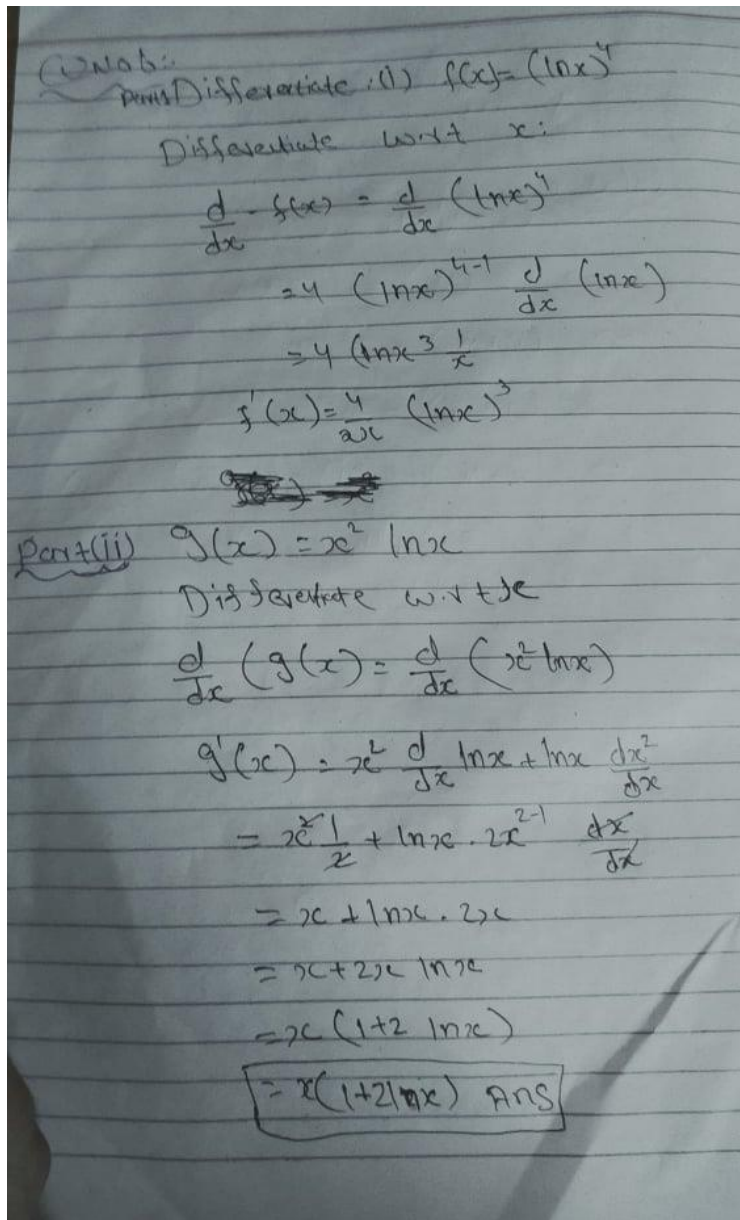 Differentiate (i) f(x) = (lnx)^4
Differentiate w.r.t x:
d/dx f(x) = d/dx (lnx)^4
= 4 (lnx)^4-1 d/dx (lnx)
= 4 (lnx^3 1/x
f'(x) = 4/x (lnx)^3
Part(ii) g(x) = x^2 lnx
Differentiate w.r.t x
d/dx (g(x) = d/dx (x^2 lnx)
g'(x) = x^2 d/dx lnx + lnx dx^2/dx
= x^2 1/x + lnx . 2x^2-1 dx/dx
= x + lnx . 2x
= x + 2x lnx
= x (1+2 lnx)
= x(1+2lnx) Ans